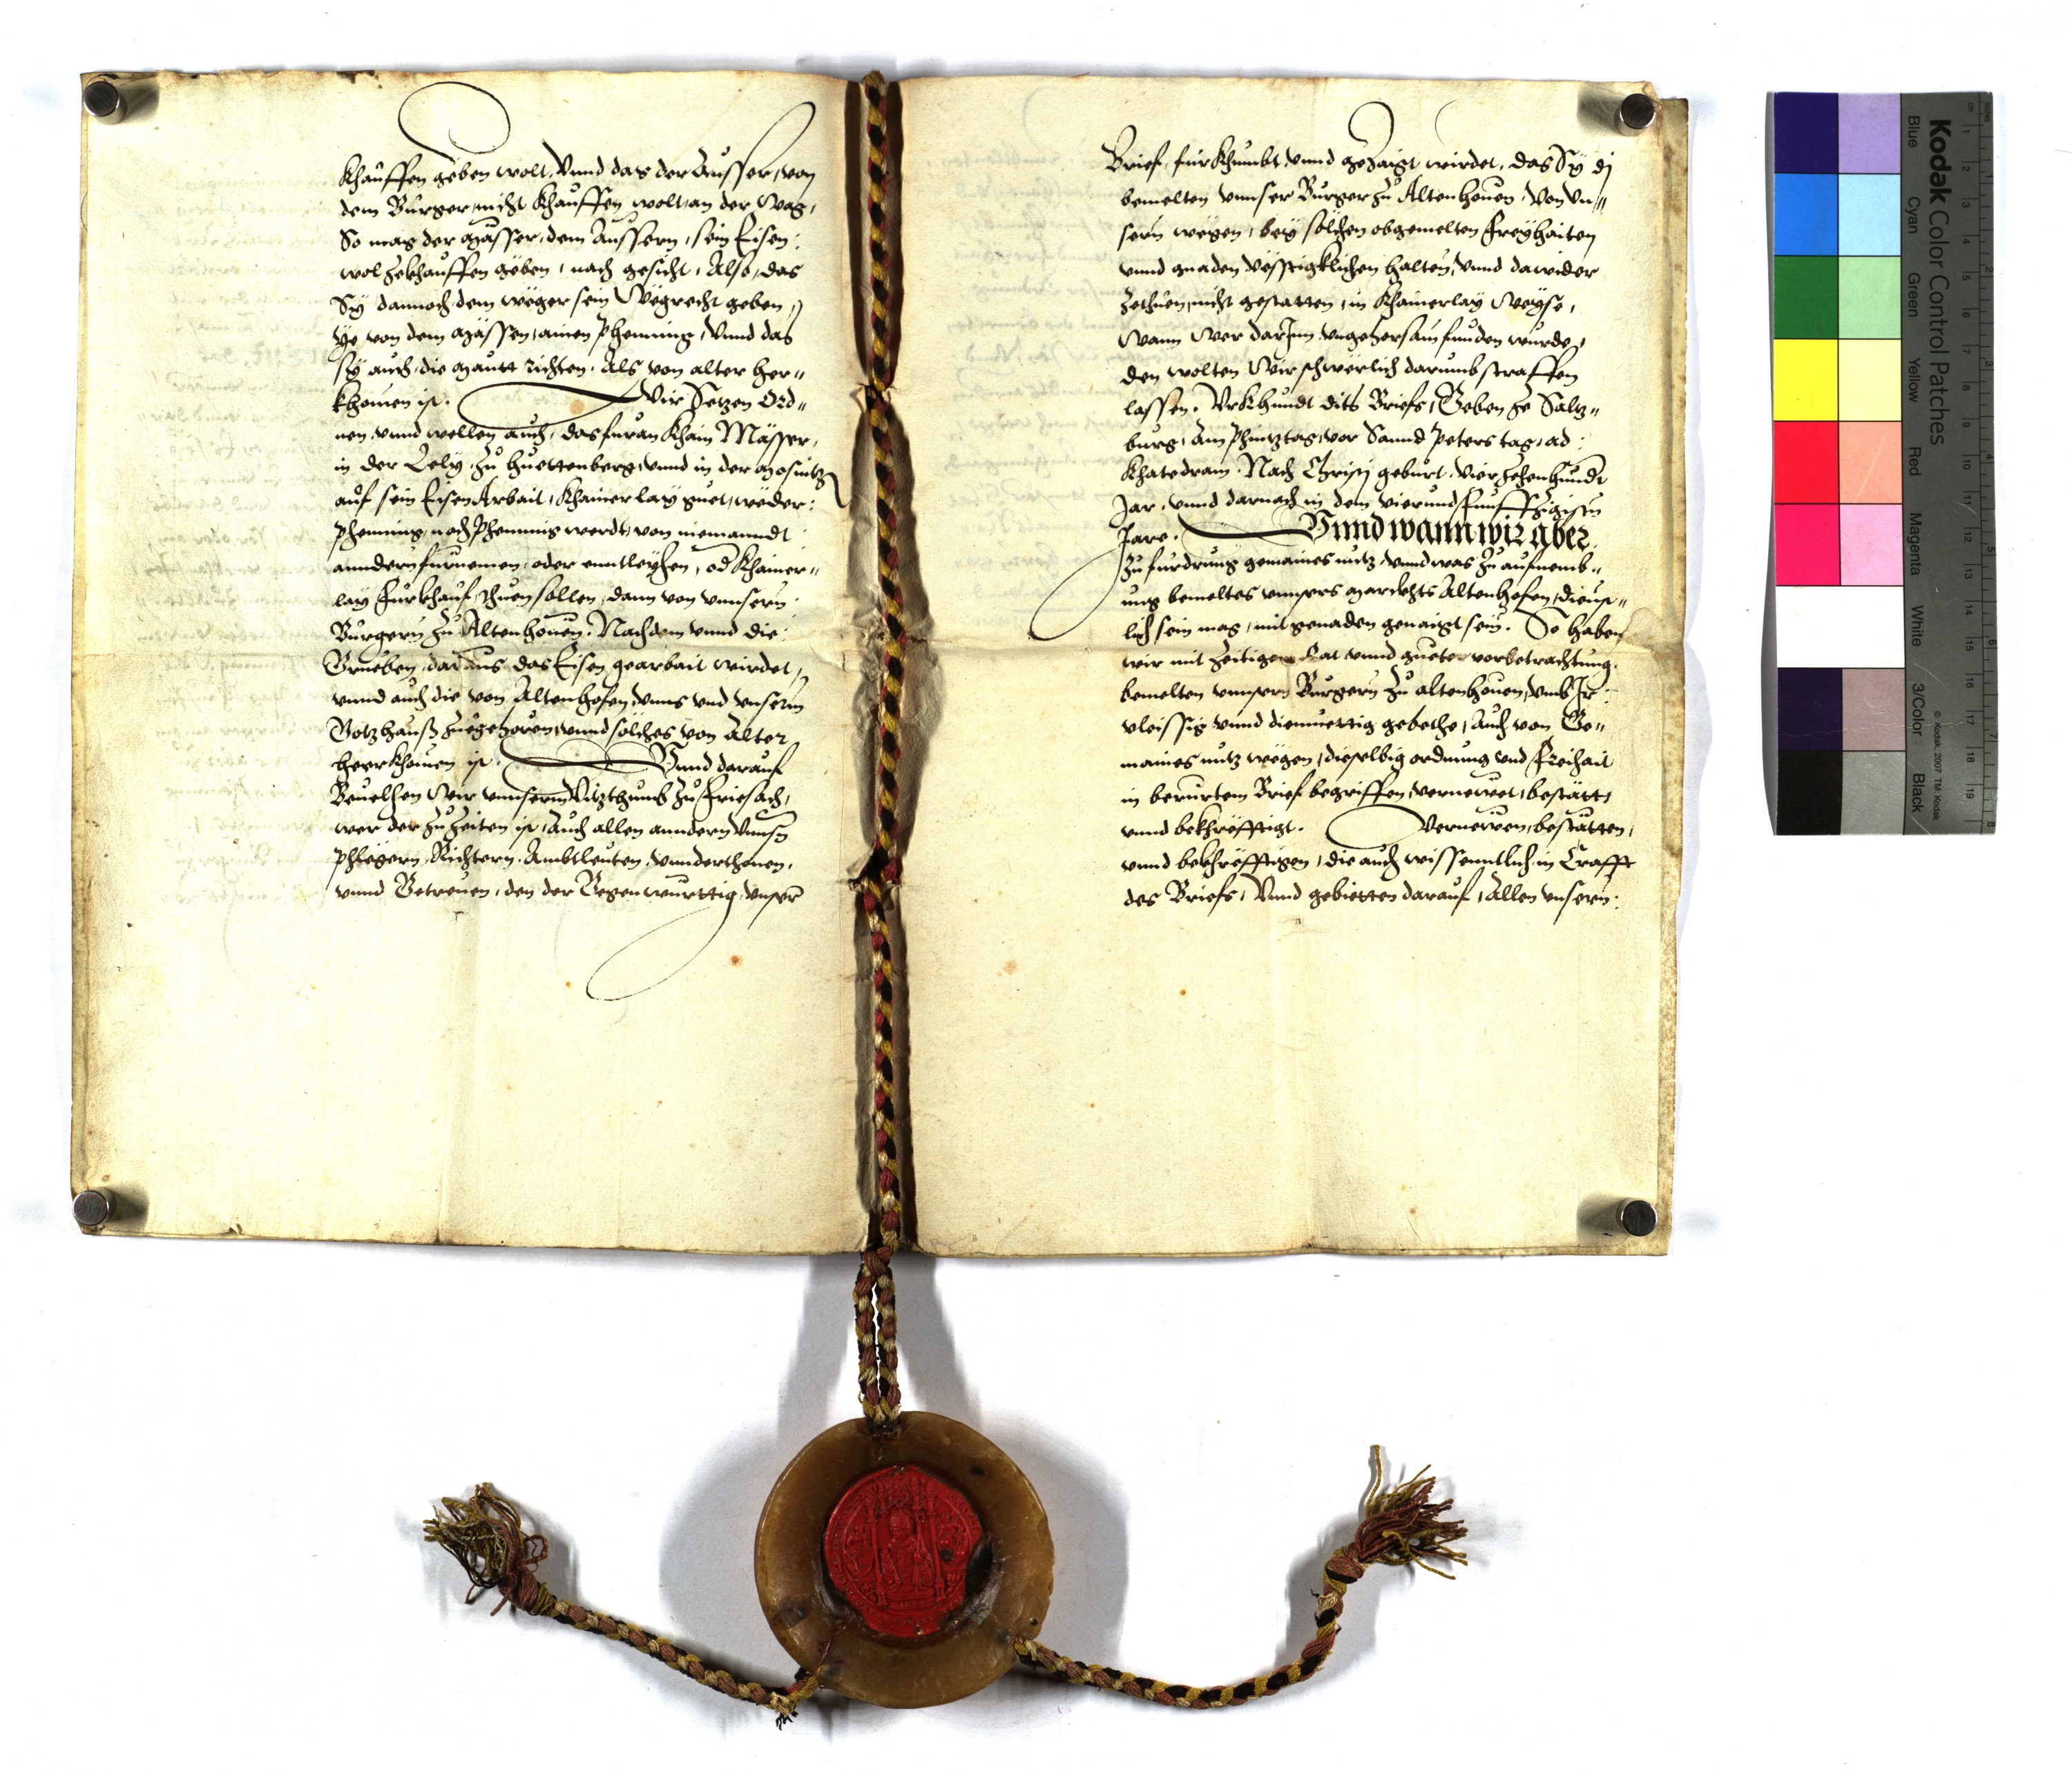 khauffen geben wolt, Vnnd das der Ausser, von
dem Burger, nicht khauffen wolt, an der Wag,
So mag der Mässer, dem Aussern, sein Eisen
wol zekhauffen geben, nach gesicht, Also, das
Sy dannoch dem weger sein Wegrecht geben,
Ye von dem Mässen, ainen Phenning, Vnnd das
sy auch, die Mautt richten, Als von alter her-
khomen ist. Wir Setzen Ord-
nen vnnd wellen auch, das furan khain Mässer,
in der Lely, zu Huettenberg, vnnd in der Mosintz
auf sein Eisen Arbait, khainerlay guet, weder
phenning, noch phennnig werdt, von niemanndt
anndern furnemen, oder enntleyhen, od khainer-
lay Furkhauf, thuen sollen, dann von vnnsern
Burgern zu Altenhouen. Nachdem vnnd die
Grueben, daraus das Eisen gearbait wirdet,
vnnd auch die von Altenhofen, vnns vnd vnserm
Gotzhauß zuegehoren, vnnd solches von Alter
heerkhomen ist. Vnnd darauf
Beuelhen Wir vnnserm Vitzthumb zu Friesach,
wer der zu Zeiten ist, Auch allen anndern Vnnsn
phlegern, Richtern, Ambtleuten, vnnderthonen,
vnnd Getreuen, den der Gegenwurttig, vnser
Brief, furkhumbt, vnnd gezaigt wirdet, das Sy dj
bemelten vnnser Burger zu Altenhouen, Von Vn-
sern wegen, bey solchen obgemelten Freyhaiten
vnnd gnaden vesstigklichen halten, vnnd dawider
zethuen, nicht gestatten, in khainerlay Weyse,
Wann Wer darInn vngehorsam funden wurde,
den wolten Wir schwerlich darumb straffen
lassen. Vrkhundt dits Briefs, Geben ze Saltz-
burg, Am Phintztag, vor Sannd Peters tag, ad
khatedram. Nach Christj geburt, vierzehenhundt
Jar, vnnd darnach in dem vierundfunffzigistn
Jare. Vnnd wann wir aber
zu furdrung gemaines nutz vnnd was zu aufnemb-
ung bemeltes vnnsers Marckhts Altenhofen, dienst-
lich sein mag, mit genaden genaigt sein. So haben
wir mit zeitigem Rat vnnd gueter vorbetrachtung
bemelten vnnsern Burgern zu altenhouen, vmb Ir
vleissig vnnd diemuettig gebethe, Auch von Ge-
maines nutz wegen, dieselbig ordnung vnd Freihait
in berurtem Brief begriffen, vernewet, bestätt,
vnnd bekhrefftigt. Vernewen, bestätten,
vnnd bekhrefftigen, die auch wissenntlich in Crafft
des Briefs, Vnnd gebietten darauf, Allen vnsern
Kodak Color Control Patches
Blue Cyan Green Yellow Red Magenta White 3/Color Black
© Kodak, 2007 TM: Kodak
cm 1 2 3 4 5 6 7 8 9 10 11 12 13 14 15 16 17 18 19